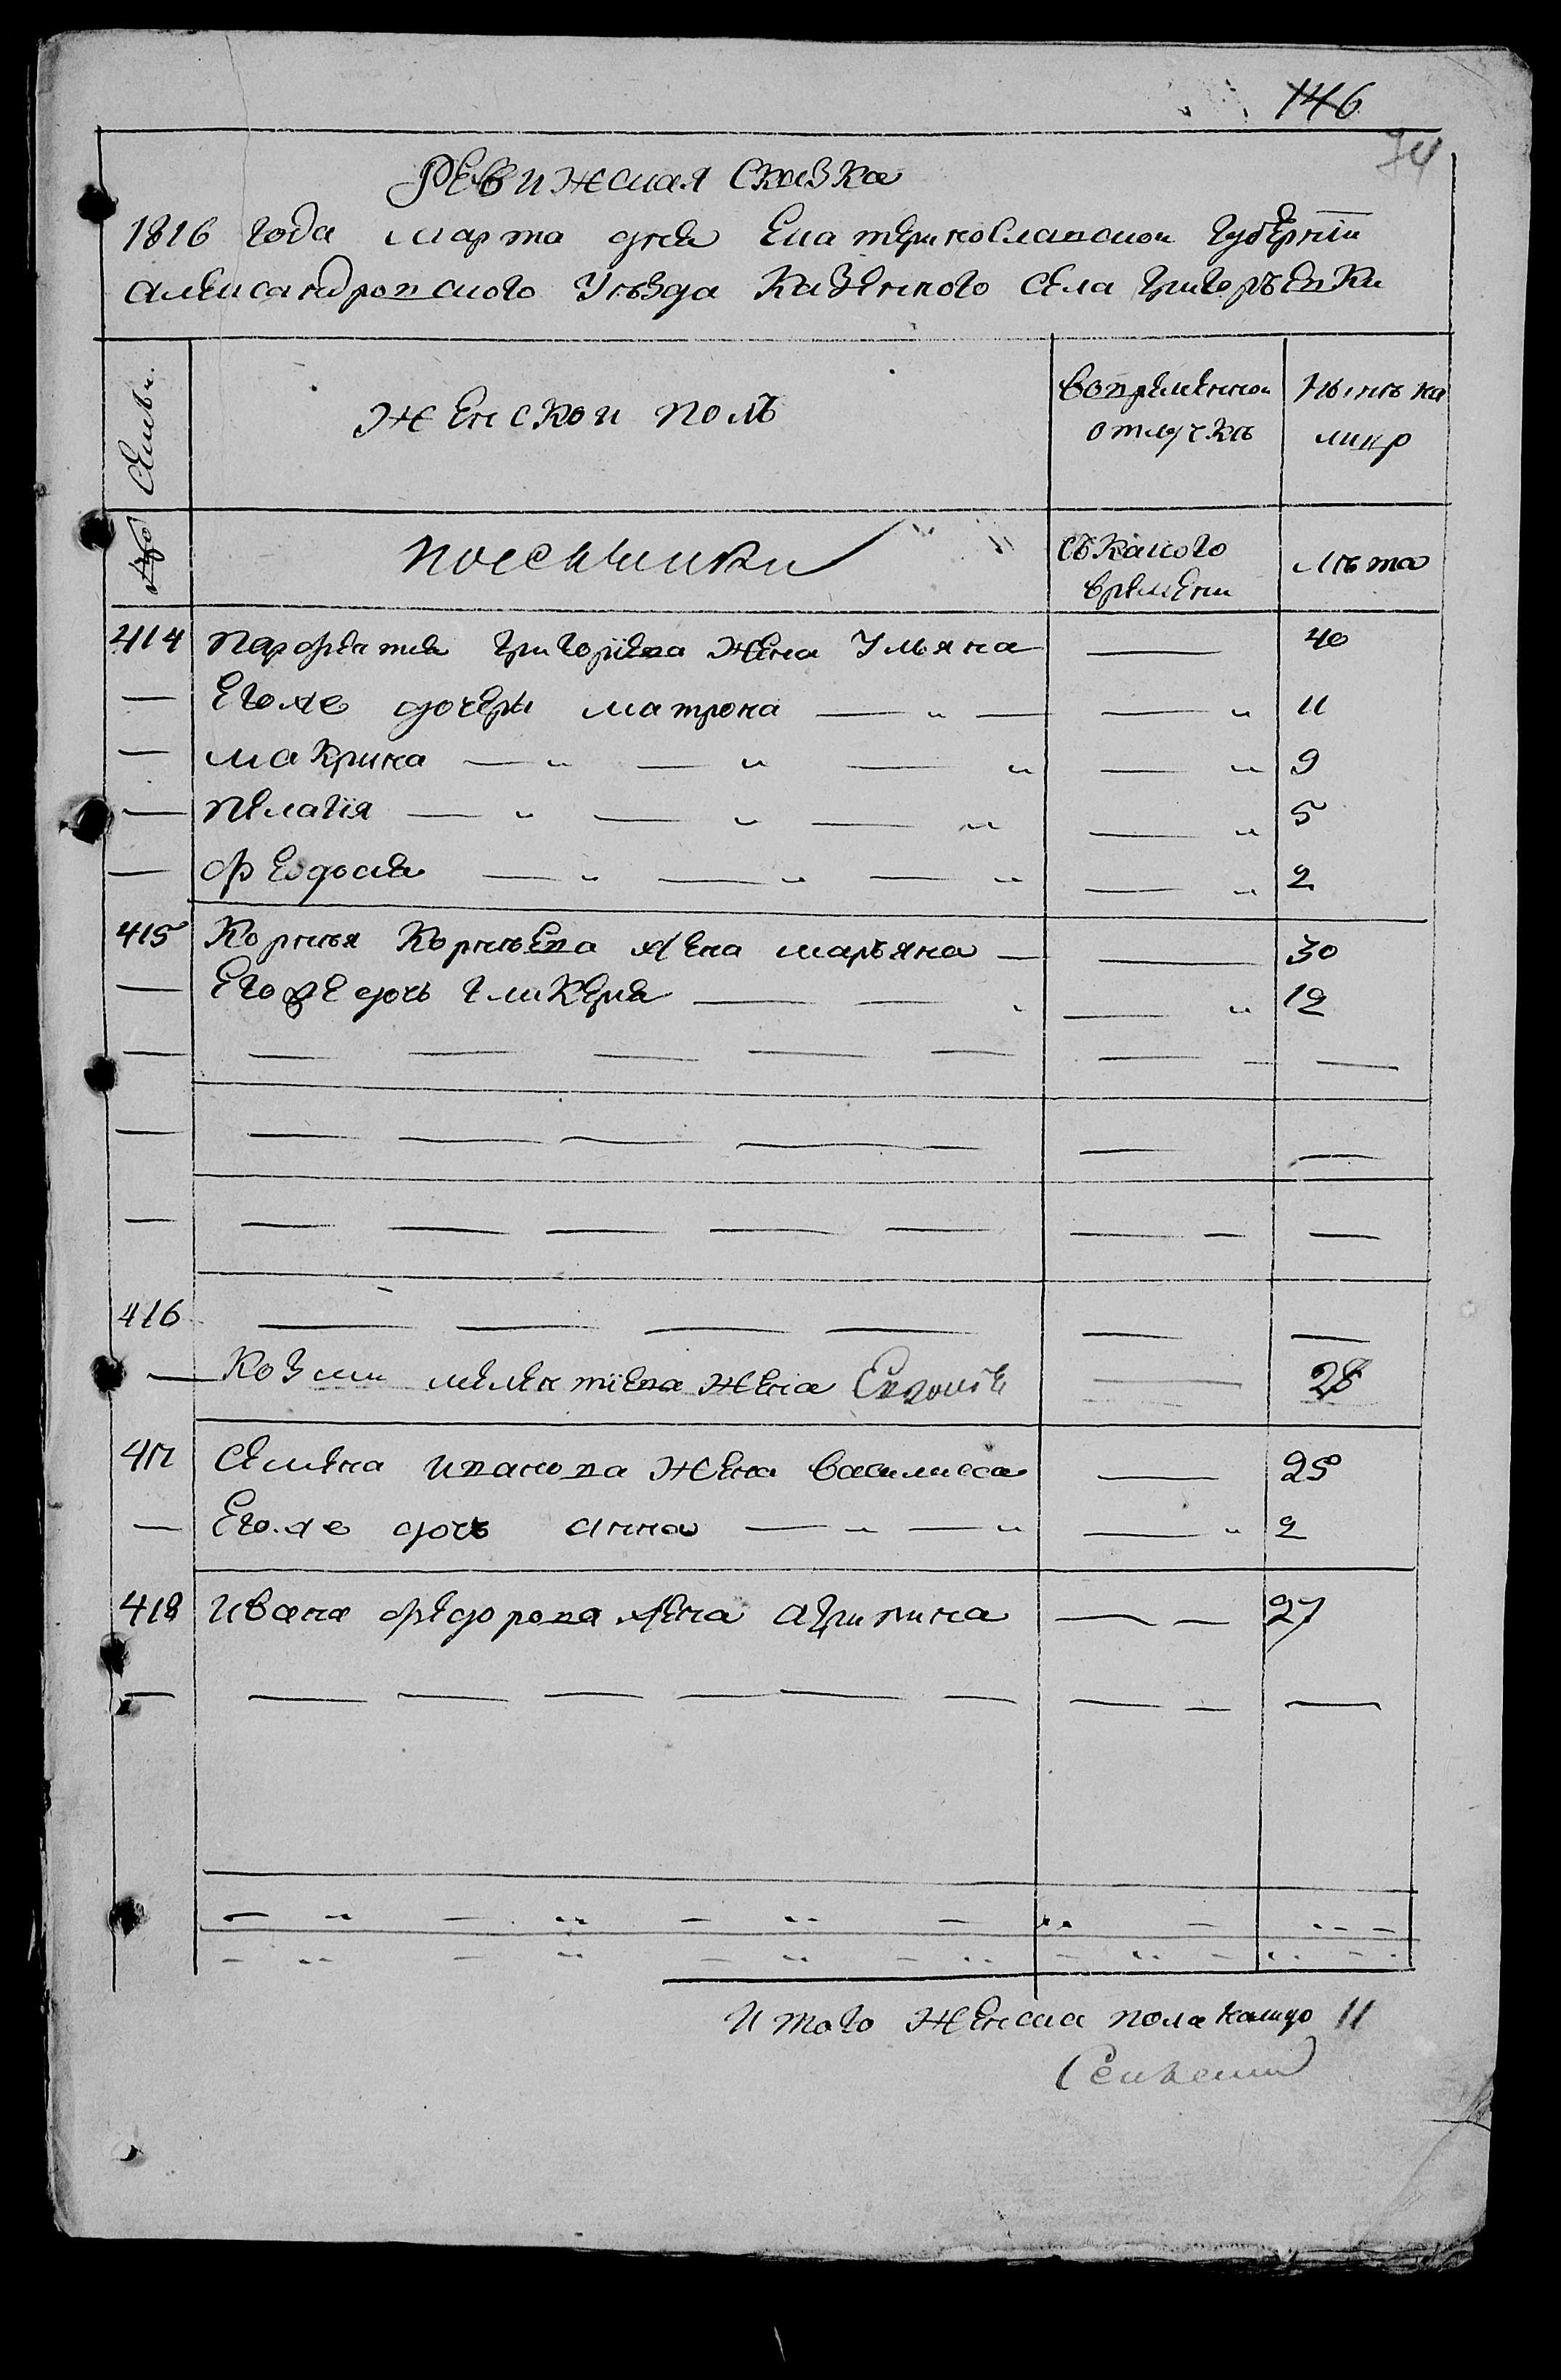 146
74
Ревижская Сказка
1816 года марта дня Екатеринославской Губернїи
Александровского Уезда Казенного Села Григорьевки
Семьи
женской полъ
Вовременной отлучкѣ
Нынѣ на лицо
Съ какого времени
лѣта
414 Парфентия Григорїева жена Ульяна — 40
— Егоже дочери матрона — „ — — „ 11
— макрина — „ — „ — „ — „ 9
— Пелагїя — „ — „ — „ — „ 5
— Феодосия — „ — „ — „ — „ 2
415 Корнѣя Корнѣева жена марьяна — — 30
— Егоже дочь Гликерия — — „ — „ 12
— — — — — — — — —
— — — — — — —
— — — — — — — — —
416 — — — — — —
— Козми мелентїева жена — 28
417 Семена иванова жена Василисса — 25
— Егоже дочь анна — „ — „ — „ 2
418 ивана федорова жена агрипина — — 27
— — — — — — — — — —
Итого женска пола налицо 11